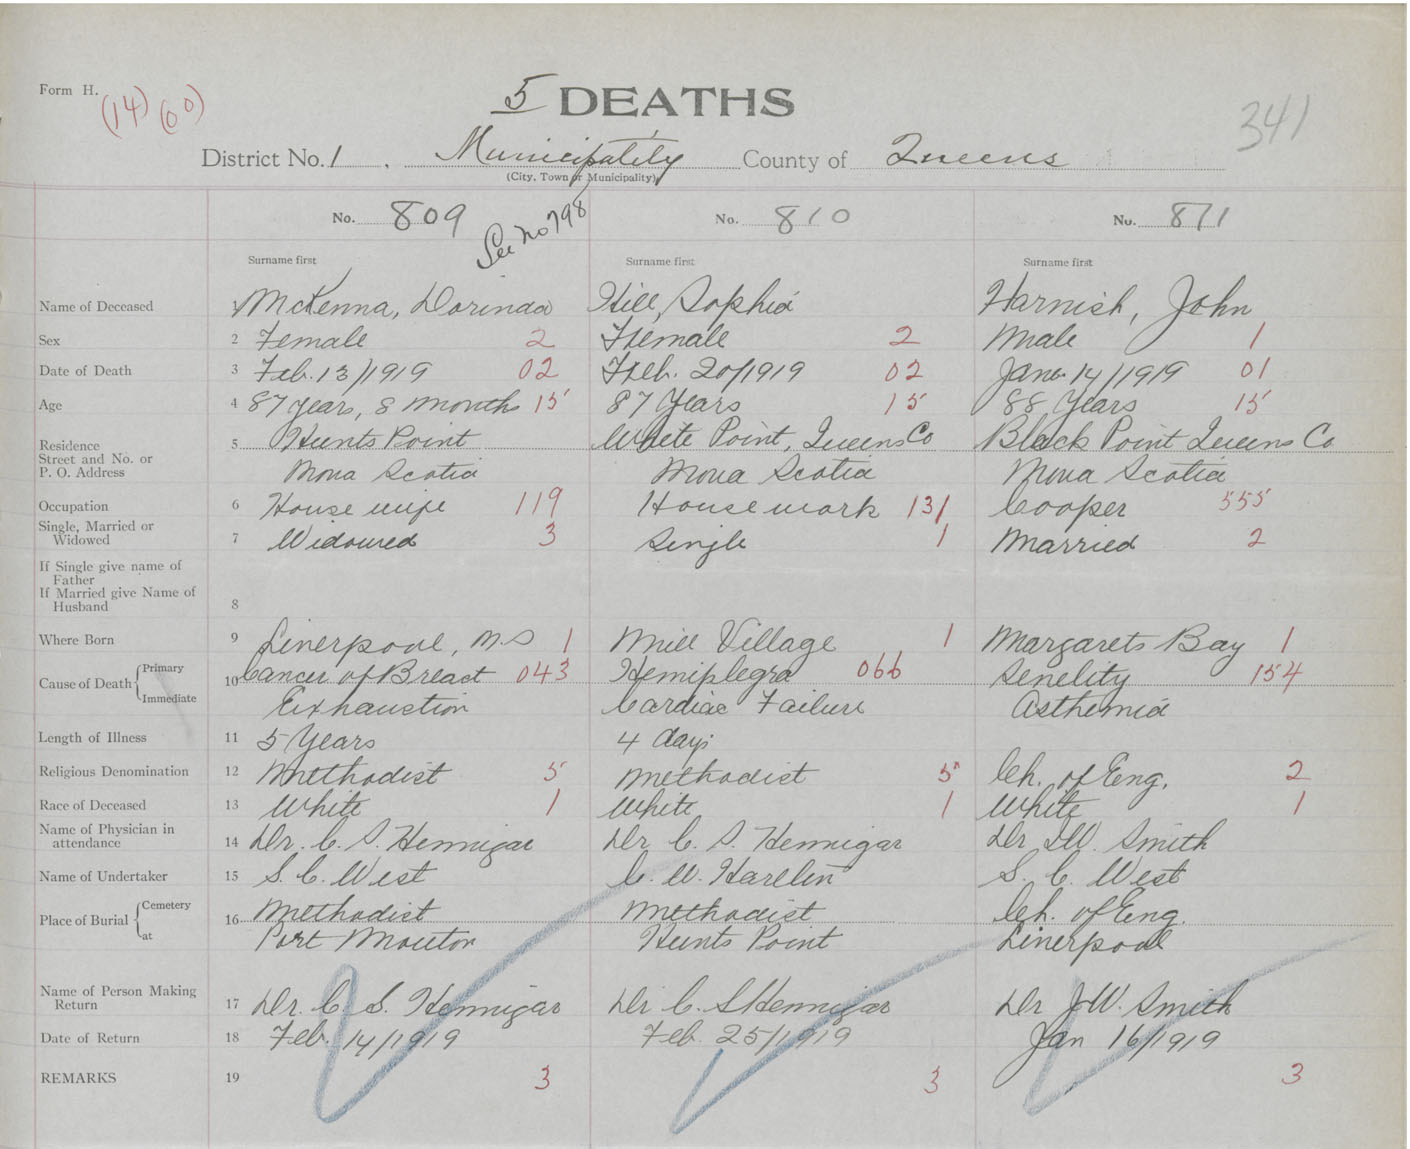 Form H.
(14) (00)
5 DEATHS
341
District No. 1 , Municipality County of Queens
(City, Town or Municipality)
No. 809 No. 810 No. 811
See No 798
Surname first Surname first Surname first
Name of Deceased 1 McKenna, Dorinda Hill, Sophia Harnish, John
Sex 2 Female 2 Female 2 Male 1
Date of Death 3 Feb. 13/1919 02 Feb. 20/1919 02 Jan 14/1919 01
Age 4 87 years, 8 months 15 87 Years 15 88 Years 15
Residence 5 Hunts Point White Point, Queens Co Black Point Queens Co
Street and No. or
P. O. Address Nova Scotia Nova Scotia Nova Scotia
Occupation 6 House wife 119 House work 131 Cooper 555
Single, Married or
Widowed 7 Widowed 3 Single 1 Married 2
If Single give name of
Father
If Married give Name of
Husband 8
Where Born 9 Liverpool, N.S 1 Mill Village 1 Margarets Bay 1
Cause of Death Primary 10 Cancer of Breast 043 Hemiplegra 066 Senelity 154
Immediate Exhaustion Cardiac Failure Asthemia
Length of Illness 11 5 Years 4 days
Religious Denomination 12 Methodist 5 Methodist 5 Ch. of Eng. 2
Race of Deceased 13 White 1 White 1 White 1
Name of Physician in
attendance 14 Dr. C. S. Hennigar Dr C. S. Hennigar Dr J.W. Smith
Name of Undertaker 15 S. C. West C. W. S. C. West
Place of Burial Cemetery 16 Methodist Methodist Ch. of Eng.
at Port Mouton Hunts Point Liverpool
Name of Person Making
Return 17 Dr. C. S. Hennigar Dr C. S Hennigar Dr J.W. Smith
Date of Return 18 Feb. 14/1919 Feb. 25/1919 Jan 16/1919
REMARKS 19 3 3 3